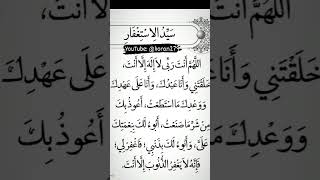 سَيِّدُ الِاسْتِغْفَارِ
YouTube @koran17
اَللّٰهُمَّ أَنْتَ رَبِّي لَا إِلٰهَ إِلَّا أَنْتَ،
خَلَقْتَنِي وَأَنَا عَبْدُكَ، وَأَنَا عَلَى عَهْدِكَ
وَوَعْدِكَ مَا اسْتَطَعْتُ، أَعُوذُ بِكَ
مِنْ شَرِّ مَا صَنَعْتُ، أَبُوءُ لَكَ بِنِعْمَتِكَ
عَلَيَّ، وَأَبُوءُ لَكَ بِذَنْبِي؛ فَاغْفِرْ لِي؛
فَإِنَّهُ لَا يَغْفِرُ الذُّنُوبَ إِلَّا أَنْتَ.